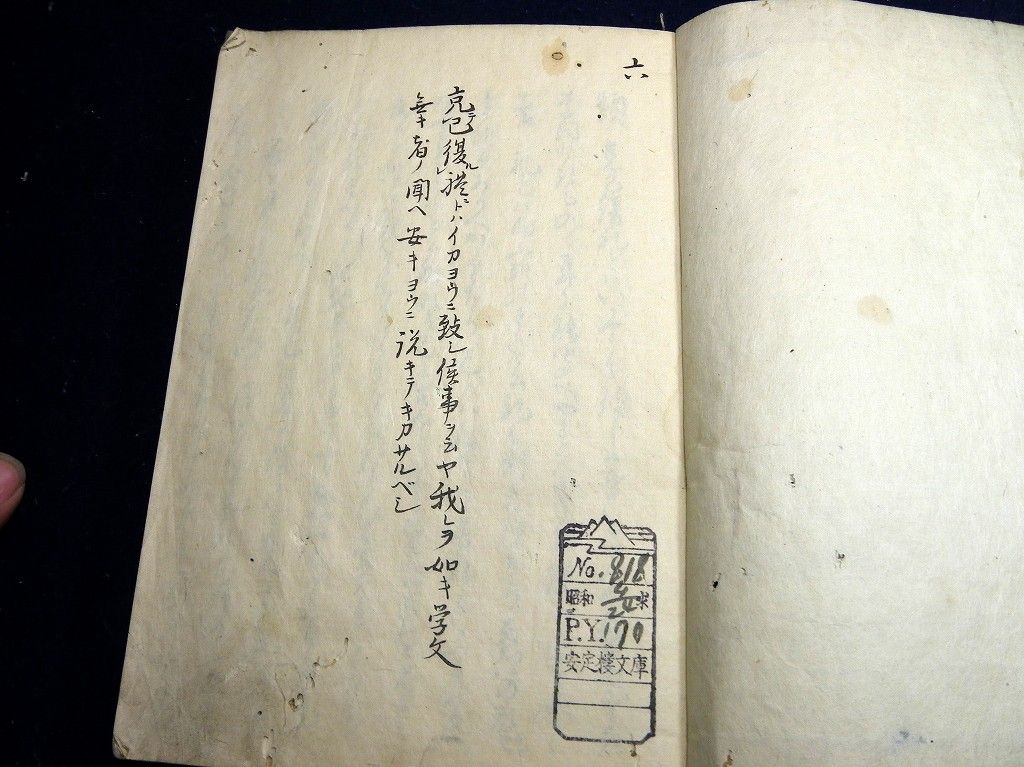 六
克己復禮トハイカヨウニ致シ候事ヲ云ヤ我レヲ如キ学文
無キ者ノ聞ヘ安キヨウニ説キテキカサルベシ
No. 818
昭和 求
P.Y. 170
安定樓文庫